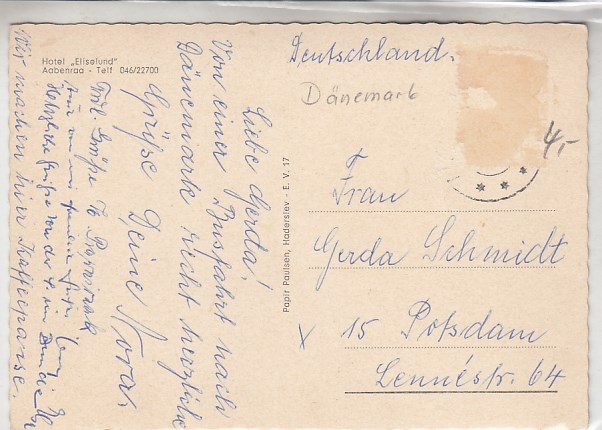 Hotel „Eliselund"
Aabenraa - Telf 046/22700
Liebe Gerda!
Von einer Busfahrt nach
Dänemark recht herzliche
Grüße Deine Nora.
Frdl. Grüße
Herzliche Grüße von der
Wir machen hier Kaffeepause.
Papir Paulsen, Haderslev - E. V. 17
Deutschland.
Dänemark
4,-
Frau
Gerda Schmidt
x 15 Potsdam
Lennéstr. 64